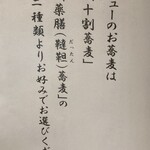 ューのお蕎麦は
十割蕎麦」
薬膳（韃靼）蕎麦」の
だったん
二種類よりお好みでお選びくだ